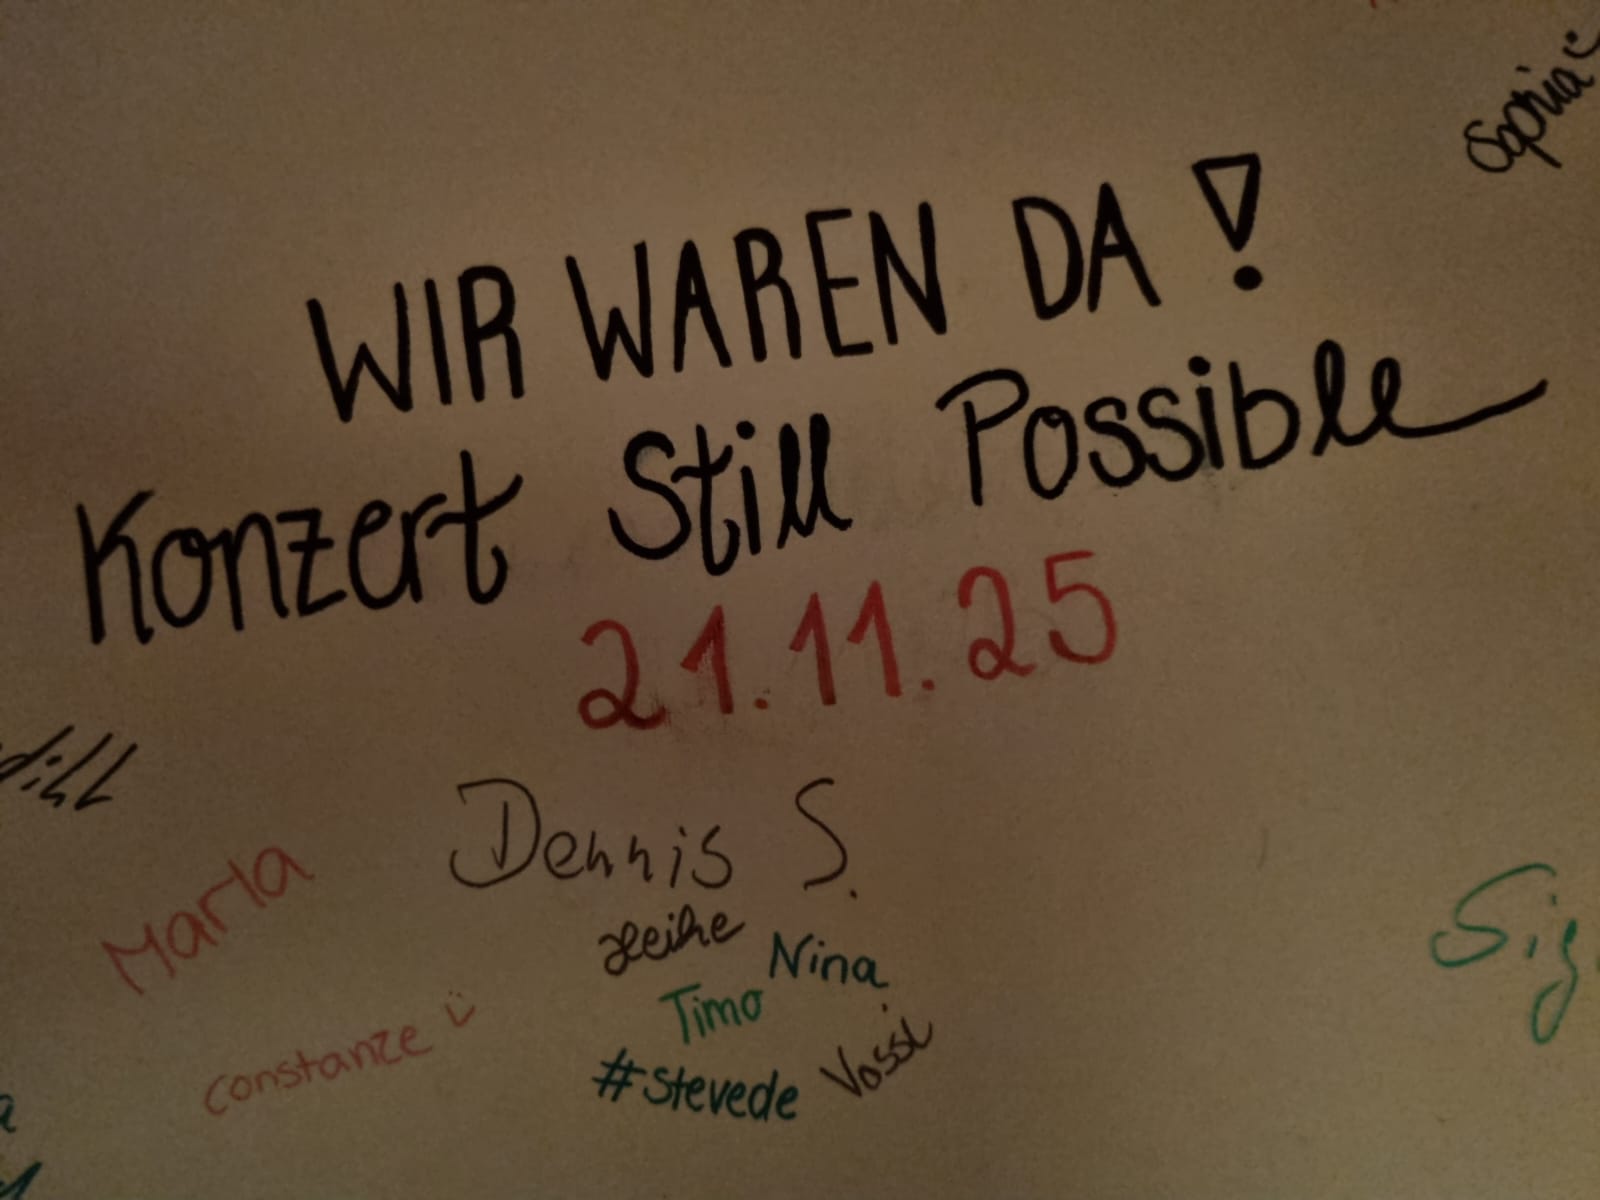 Sophia
WIR WAREN DA!
Konzert Still Possible
21.11.25
Dennis S.
Marla
Heike
Nina
Timo
constanze
#stevede
Vossi